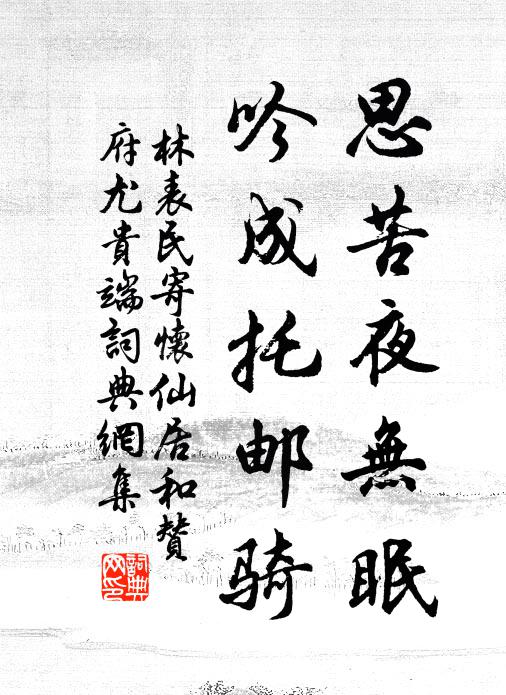 思苦夜無眠
吟成托邮骑
林表民寄懷仙居和赞
府尤貴端詞典網集
詞典
网印